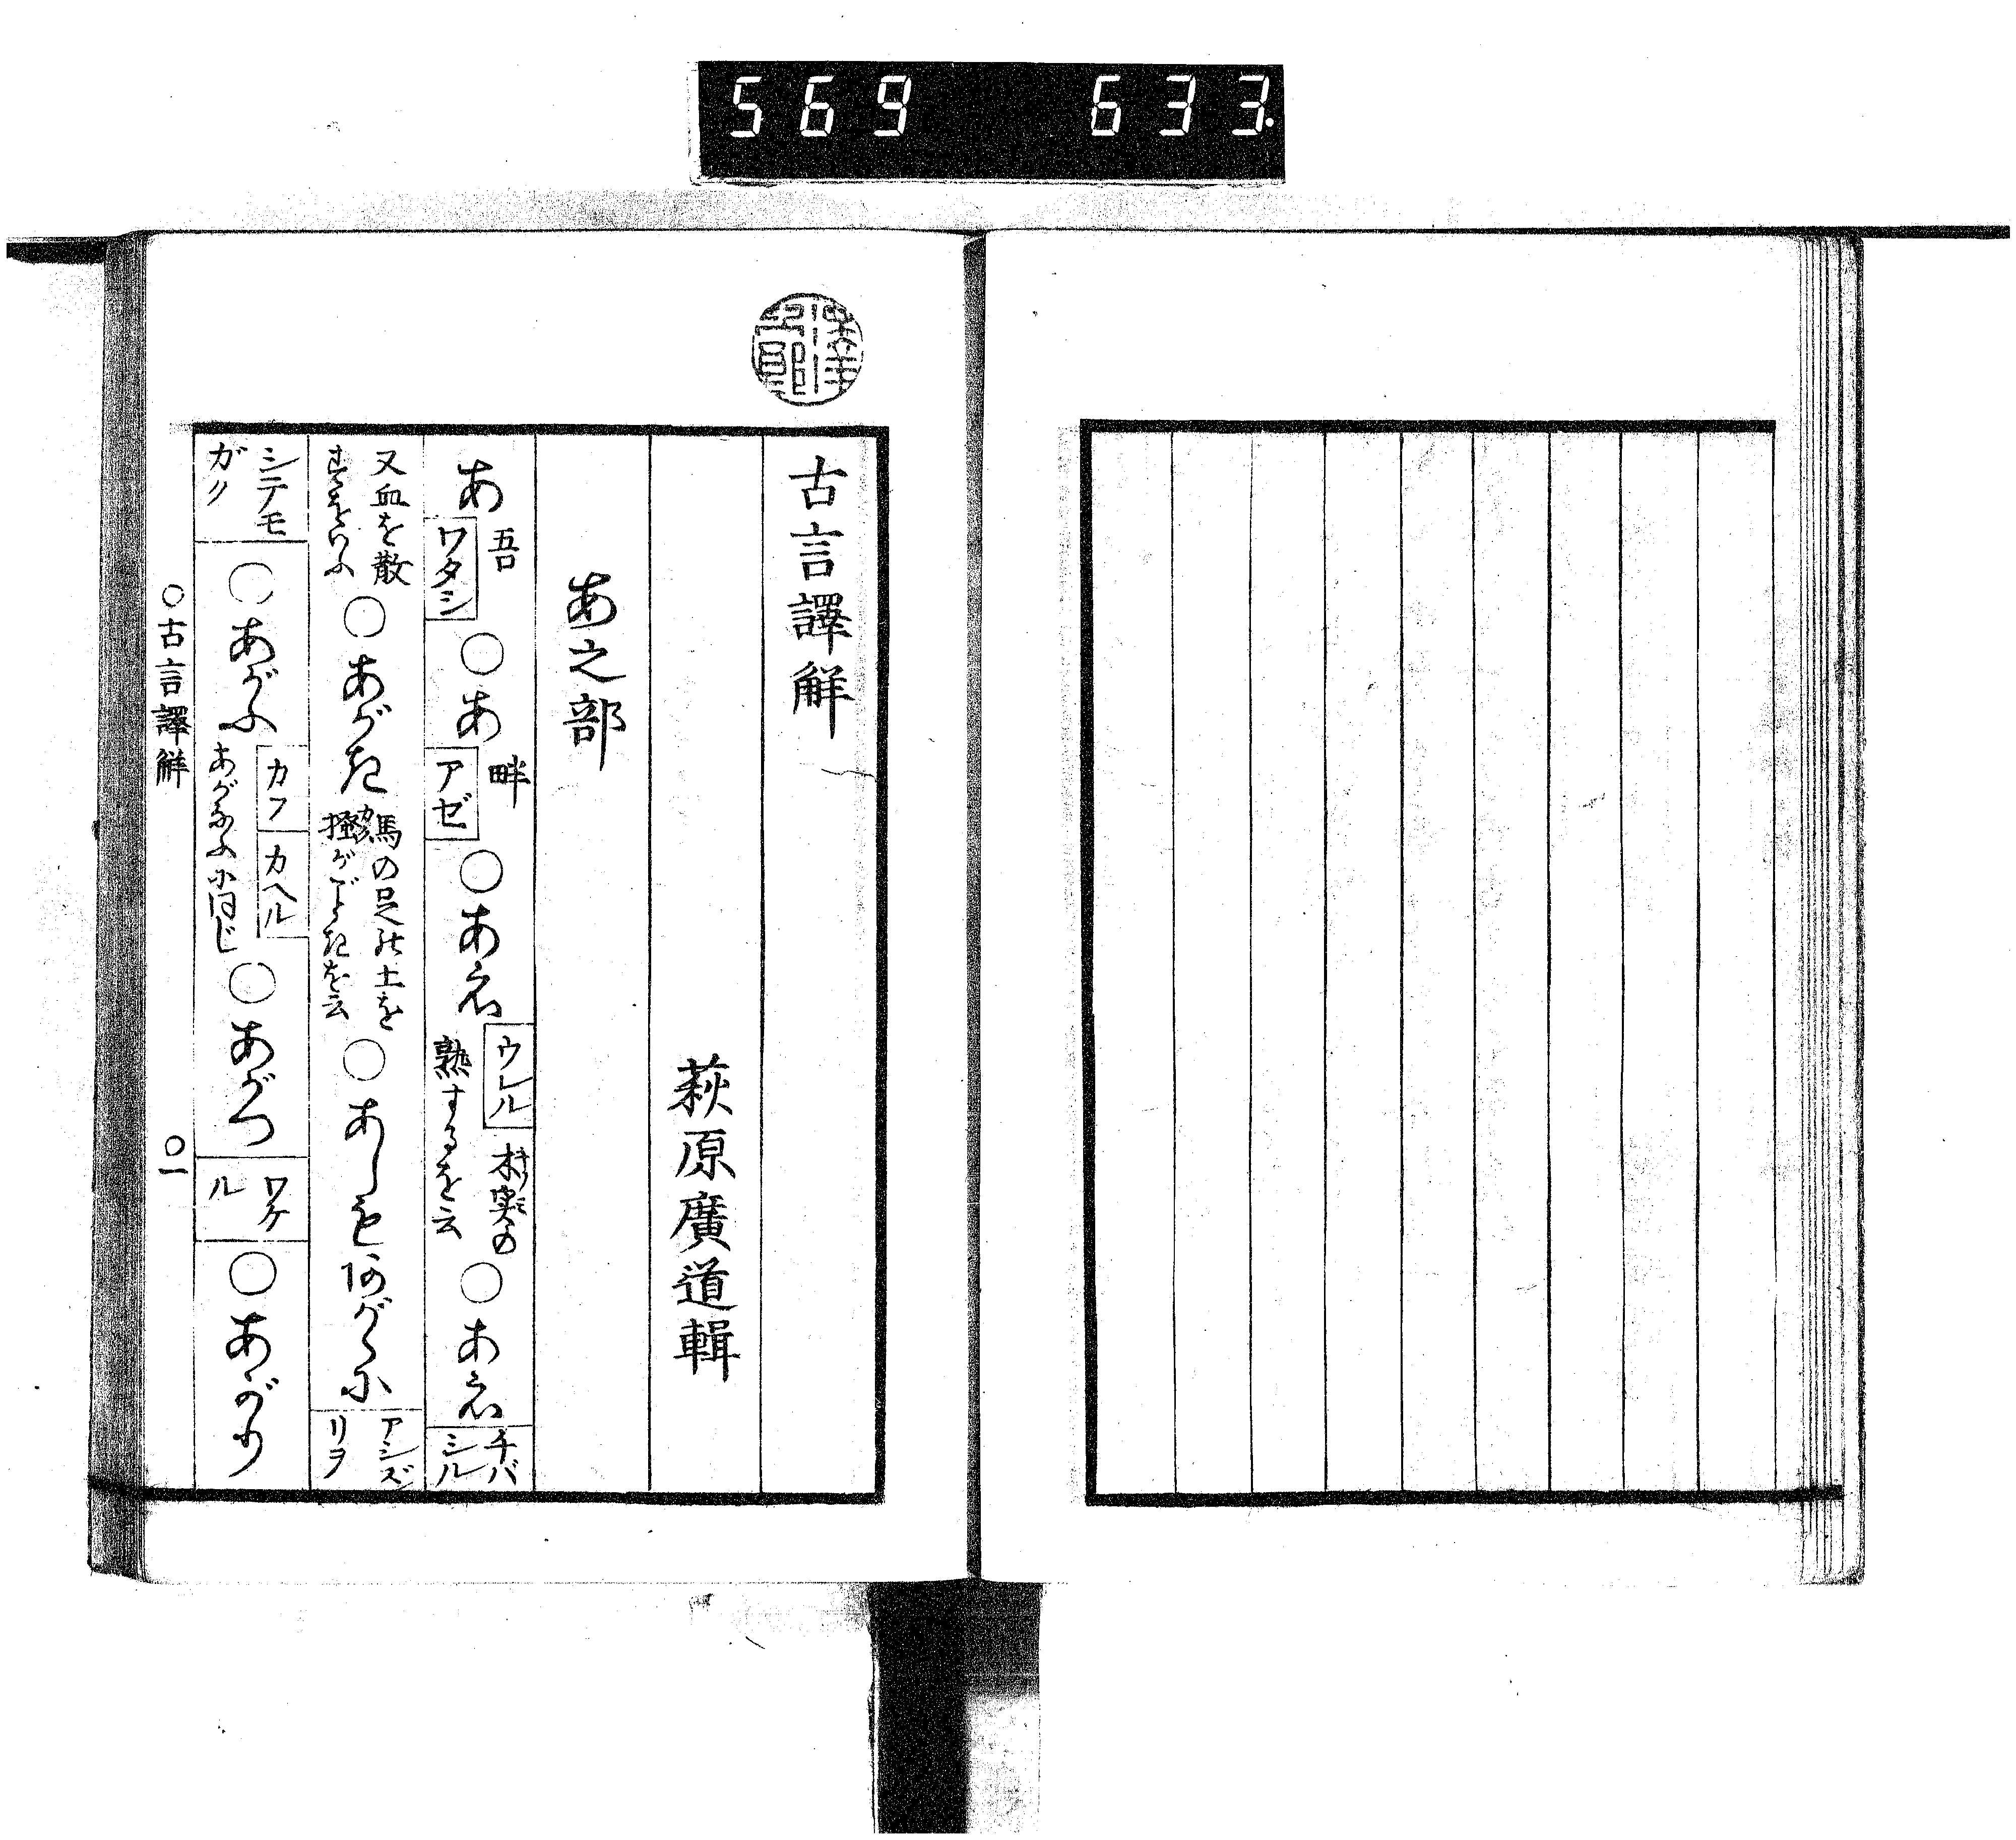 569 633.
古言譯解
萩原廣道輯
あ之部
あ 吾 ワタシ ○あ 畔 アゼ ○あえ ウルル 木実の 熟するを云 ○あえ チバシル
又血を散すをいふ ○あがき 馬の足にて土を掻がごときを云 ○あしをあがゝに アシズリヲ
シニテモガク ○あがふ カフ カヘル あがなふに同じ ○あがつ ワケル ○あゝがり
○古言譯解 ○一